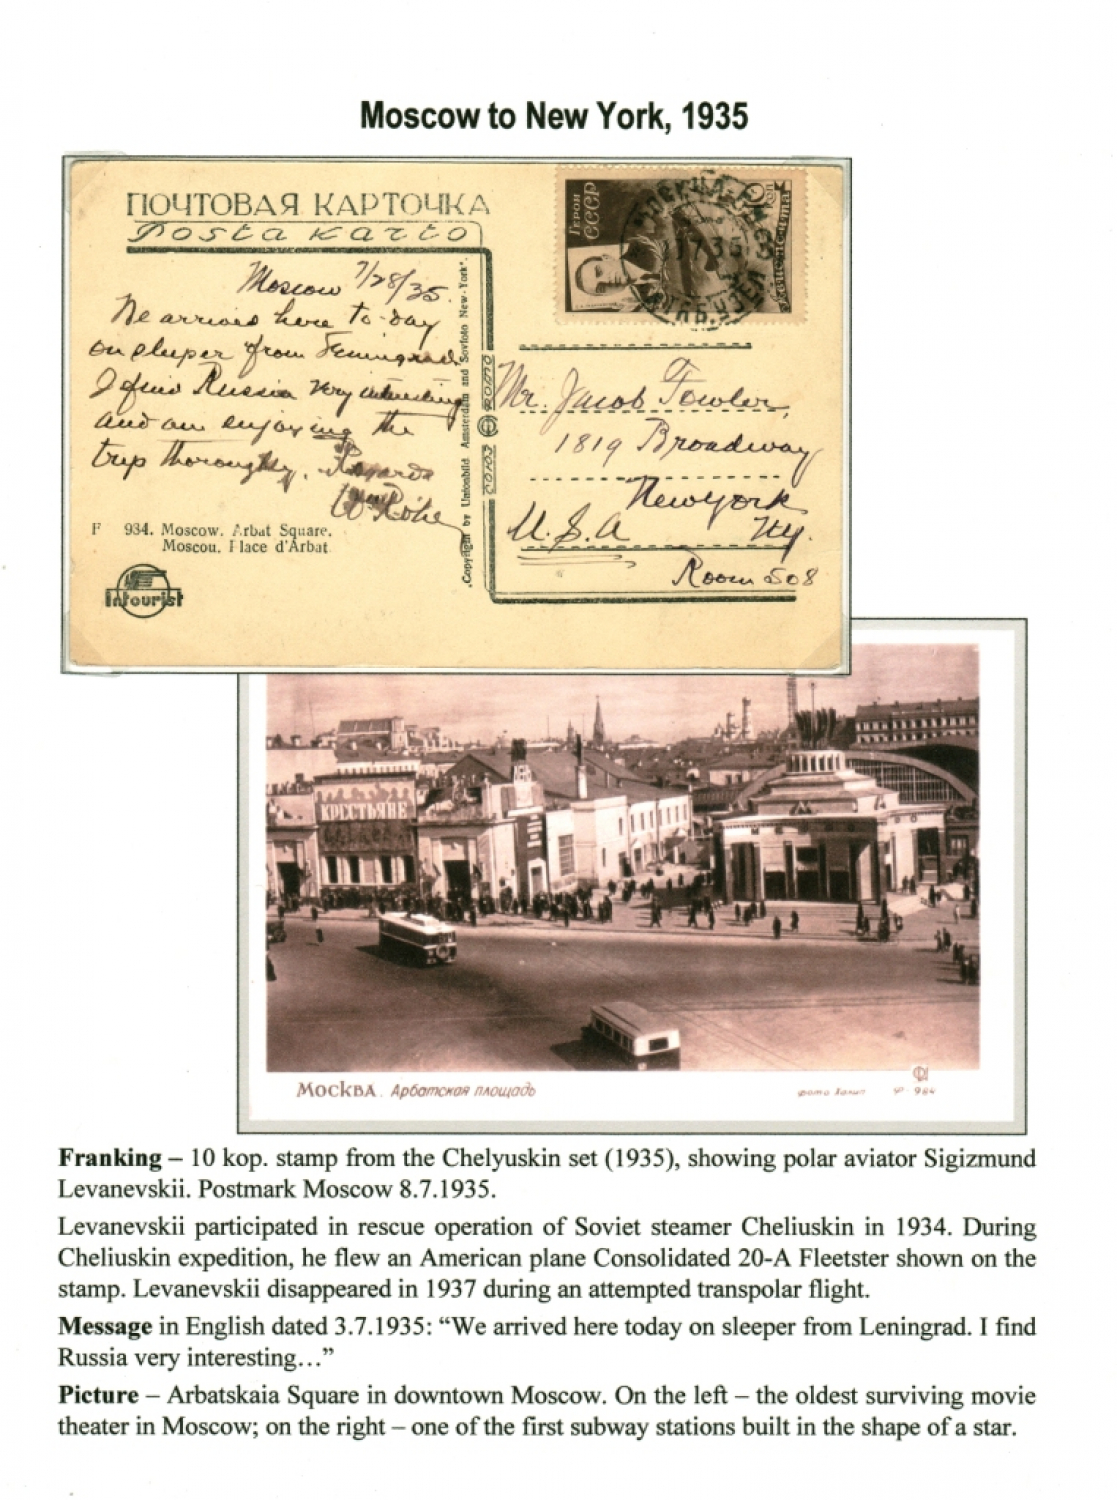 Moscow to New York, 1935
ПОЧТОВАЯ КАРТОЧКА
Posta karto
Moscow 7/28/35.
We arrived here to-day
on sleeper from Leningrad
I find Russia very interesting
and am enjoying the
trip thoroughly. Regards
Wm Rohe
F 934. Moscow. Arbat Square.
Moscou. Place d'Arbat
Intourist
Copyright by Unionbild. Amsterdam and Sovfoto New-York.
СОЮЗ ФОТО
ГЕРОИ
СССР
МОСКВА
Mr. Jacob Fowler,
1819 Broadway
New York
U.S.A NY.
Room 508
КРЕСТЬЯНЕ
М
МОСКВА. Арбатская площадь
фото Халип Ф-984
Franking – 10 kop. stamp from the Chelyuskin set (1935), showing polar aviator Sigizmund
Levanevskii. Postmark Moscow 8.7.1935.
Levanevskii participated in rescue operation of Soviet steamer Cheliuskin in 1934. During
Cheliuskin expedition, he flew an American plane Consolidated 20-A Fleetster shown on the
stamp. Levanevskii disappeared in 1937 during an attempted transpolar flight.
Message in English dated 3.7.1935: “We arrived here today on sleeper from Leningrad. I find
Russia very interesting…”
Picture – Arbatskaia Square in downtown Moscow. On the left – the oldest surviving movie
theater in Moscow; on the right – one of the first subway stations built in the shape of a star.